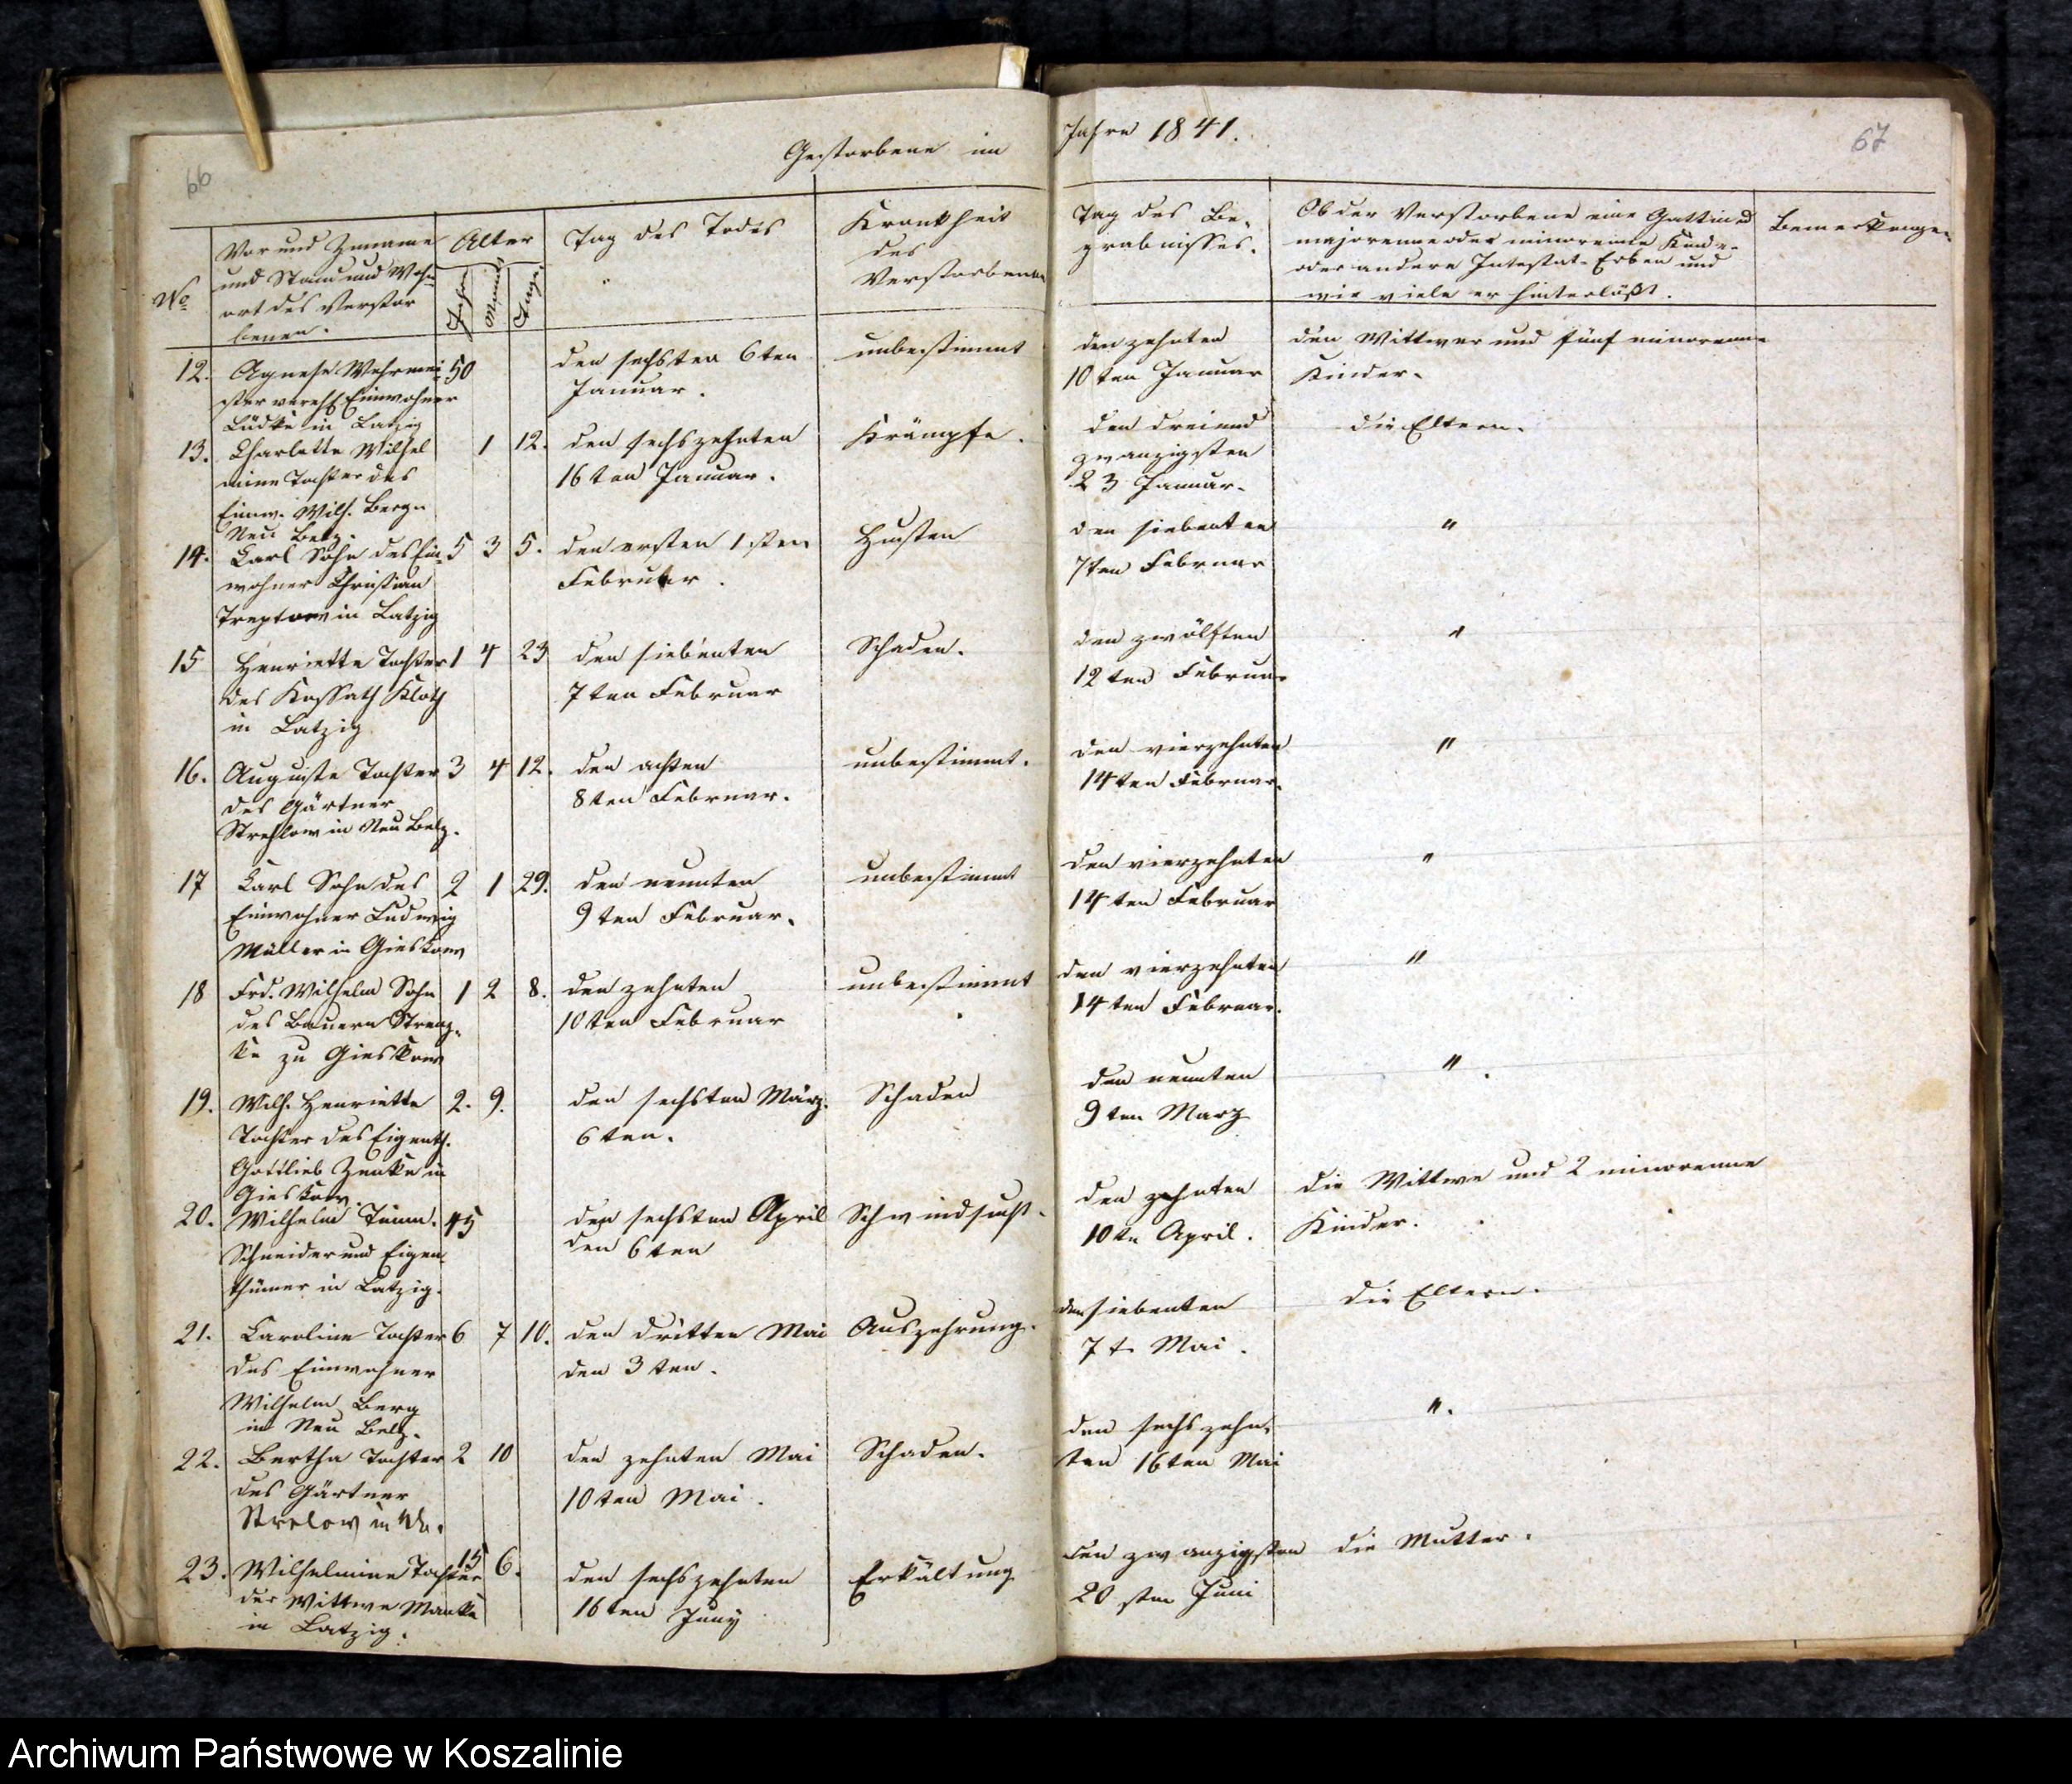 66
67
Gestorbene im Jahre 1841.
No
Vor und Zuname
und Stand und Wohn
ort des Verstor
benen.
Alter
Jahre
Monate
Tage
Tag des Todes
Krankheit
des
Verstorbenen
Tag des Be-
grabnisses.
Ob der Verstorbene eine Gattin od
majorenne oder minorenne Kinder
oder andere Intestat-Erben und
wie viele er hinterläßt.
Bemerkungen
12. Agnese Wehrmei 50
ster vereh. Einwohner
Lüdtke in Latzig
den sechsten 6ten
Januar.
unbestimmt
den zehnten
10ten Januar
den Wittwer und fünf minorenne
Kinder.
13. Charlotte Wilhel 1 12.
mine Tochter des
Einw. Wilh. Berg
Neu Belz.
den sechszehnten
16ten Januar.
Krämpfe.
den dreiund
zwanzigsten
23 Januar.
die Eltern.
14. Carl Sohn des Ein 5 3 5.
wohner Christian
Treptow in Latzig
den ersten 1sten
Februar.
Husten
den siebenten
7ten Februar
"
15 Henriette Tochter 1 4 23
des Kossath Kloth
in Latzig
den siebenten
7ten Februar
Schaden.
den zwölften
12ten Februar
"
16. Auguste Tochter 3 4 12.
des Gärtner
Strehlow in Neu Belz.
den achten
8ten Februar.
unbestimmt.
den vierzehnten
14ten Februar.
"
17 Carl Sohn des 2 1 29.
Einwohner Ludwig
Müller in Gieskow
den neunten
9ten Februar.
unbestimmt
den vierzehnten
14ten Februar
"
18 Frd. Wilhelm Sohn 1 2 8.
des Bauern Strenz-
ke zu Gieskow
den zehnten
10ten Februar
unbestimmt
den vierzehnten
14ten Februar.
"
19. Wilh. Henriette 2. 9.
Tochter des Eigenth.
Gottlieb Zenke in
Gieskow.
den sechsten März.
6ten.
Schaden
den neunten
9ten Marz
"
20. Wilhelm Timm. 45
Schneider und Eigen
thümer in Latzig.
den sechsten April
den 6ten
Schwindsucht.
den zehnten
10te April.
die Wittwe und 2 minorenne
Kinder.
21. Caroline Tochter 6 7 10.
des Einwohner
Wilhelm Berg
in Neu Belz.
den dritten Mai
den 3ten.
Auszehrung.
den siebenten
7t. Mai.
die Eltern.
22. Bertha Tochter 2 10
des Gärtner
Strelow in
den zehnten Mai
10ten Mai.
Schaden.
den sechszehn-
ten 16ten Mai
".
23. Wilhelmine Tochter 15 6.
der Wittwe Manke
in Latzig.
den sechszehnten
16ten Juny
Erkältung
den zwanzigsten
20sten Juni
die Mutter.
Archiwum Państwowe w Koszalinie